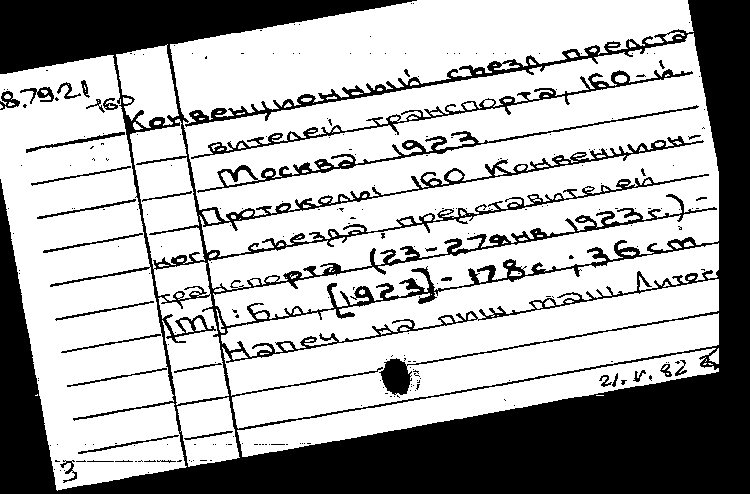 8.79.21
-160
Конвенционный съезд предста
вителей транспорта, 160-й.
Москва. 1923.
Протоколы 160 Конвенцион-
ного съезда представителей
транспорта (23-27 янв. 1923 г.).-
[М]: Б.и., [1923].- 178 с.; 36 см.
Напеч. на пиш. маш. Литогр
21.V.82
3